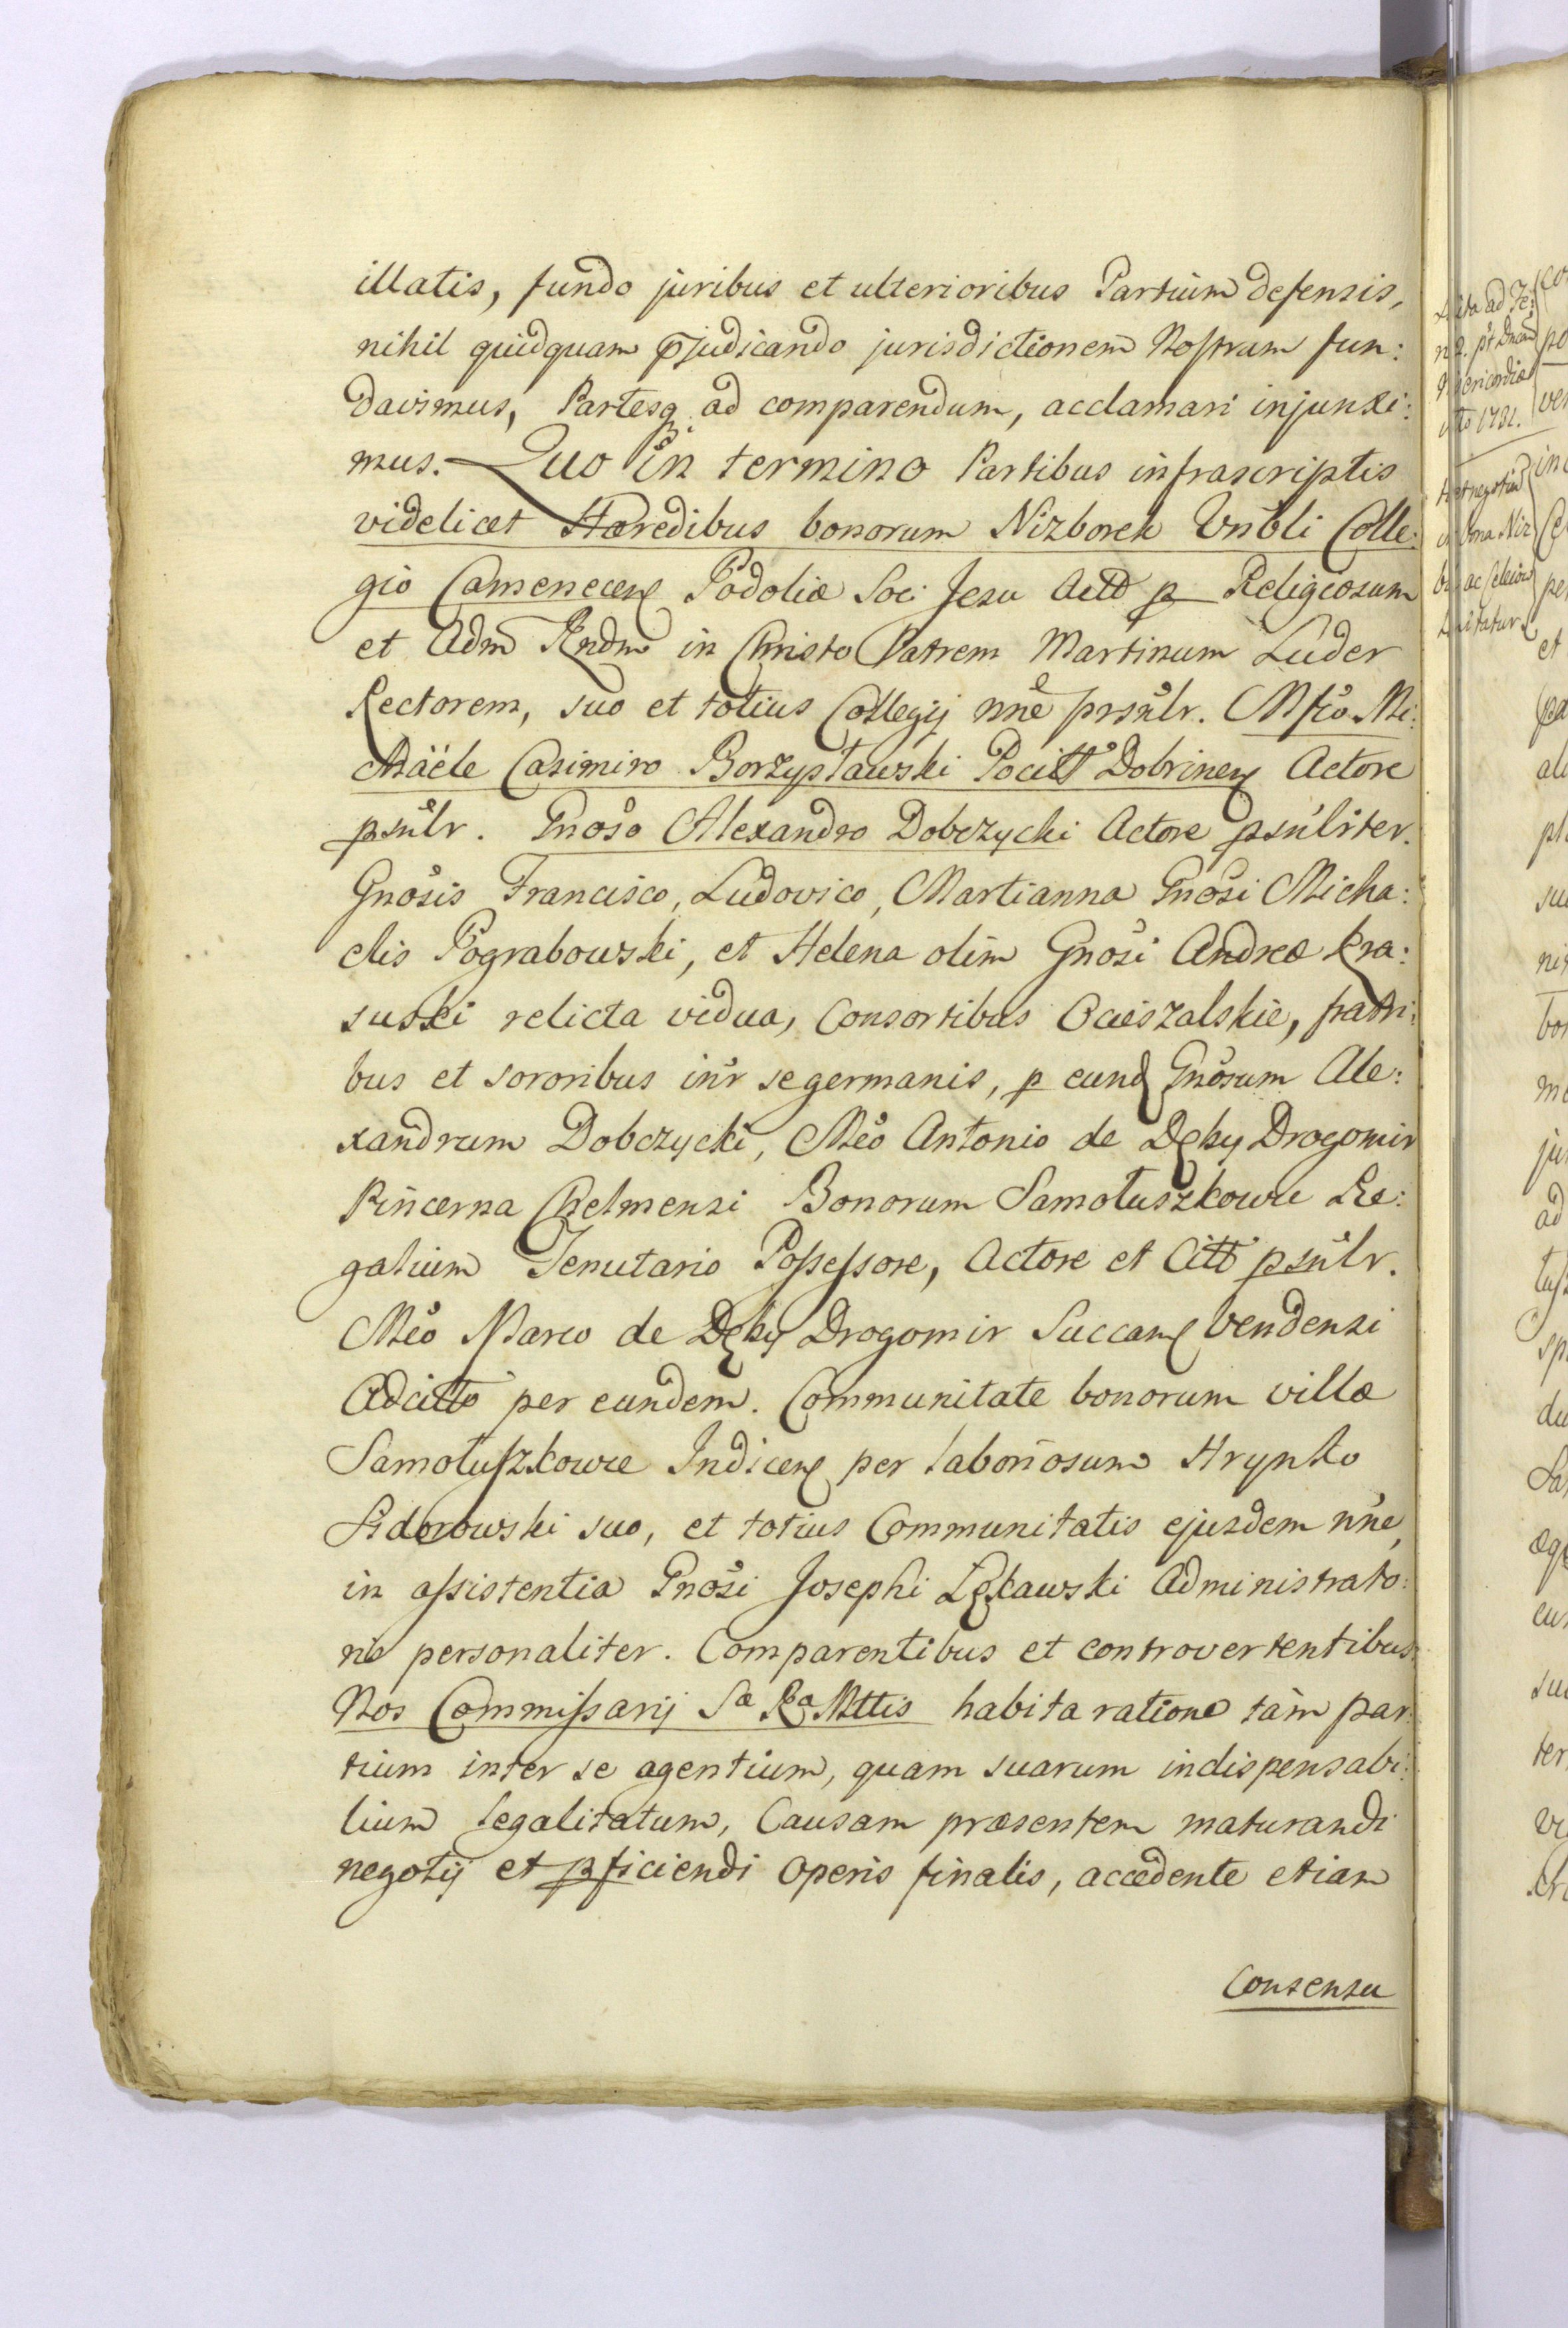 illatis, fundo juribus et ulterioribus Partium defensis,
nihil quidquam p̄judicando jurisdictionem Nostram fun:
davimus, Partesq̨ ad comparendum, acclamari injunxi:
mus. Quo in termino Partibus infrascriptis
videlicet Hæredibus bonorum Nizborek Vnbli Colle:
gio Camenecen Podoliæ Soc: Jesu Actto p Religiosum
et Adm Rndm in Christo Patrem Martinum Luder
Rectorem, suo et totius Collegij nne prsnlr. Mfco Mi:
chäele Casimiro Borzysławski Pocill Dobrinen Actore
psnlr. Gnoso Alexandro Dobczycki Actore psnliter.
Gnosis Francisco, Ludovico, Martianna Gnosi Micha:
elis Pograbowski, et Helena olim Gnosi Andreæ Kra:
suski relicta vidua, Consortibus Ocieszalskie, fratri:
bus et sororibus inr se germanis, p eund Gnosum Ale:
xandrum Dobczycki, Mco Antonio de Dęby Drogomir
Pincerna Chelmensi Bonorum Samołuszkowce Re:
galium Tenutario Possessore, Actore et Citto psnlr.
Mco Marco de Dęby Drogomir Succam Vendensi
Adcitto per eundem. Communitate bonorum villæ
Samołuszkowce Judicen per laboriosum Hrynko
Sidorowski suo, et totius Communitatis ejusdem nne,
in assistentia Gnosi Josephi Lękawski Administrato:
ris personaliter. Comparentibus et controvertentibus.
Nos Commissarij Sæ Ræ Mttis habita ratione tàm par:
tium inter se agentium, quam suarum indispensabi:
lium legalitatum, Causam præsentem maturandi
negotij et pficiendi operis finalis, accedente etiam
Consensu